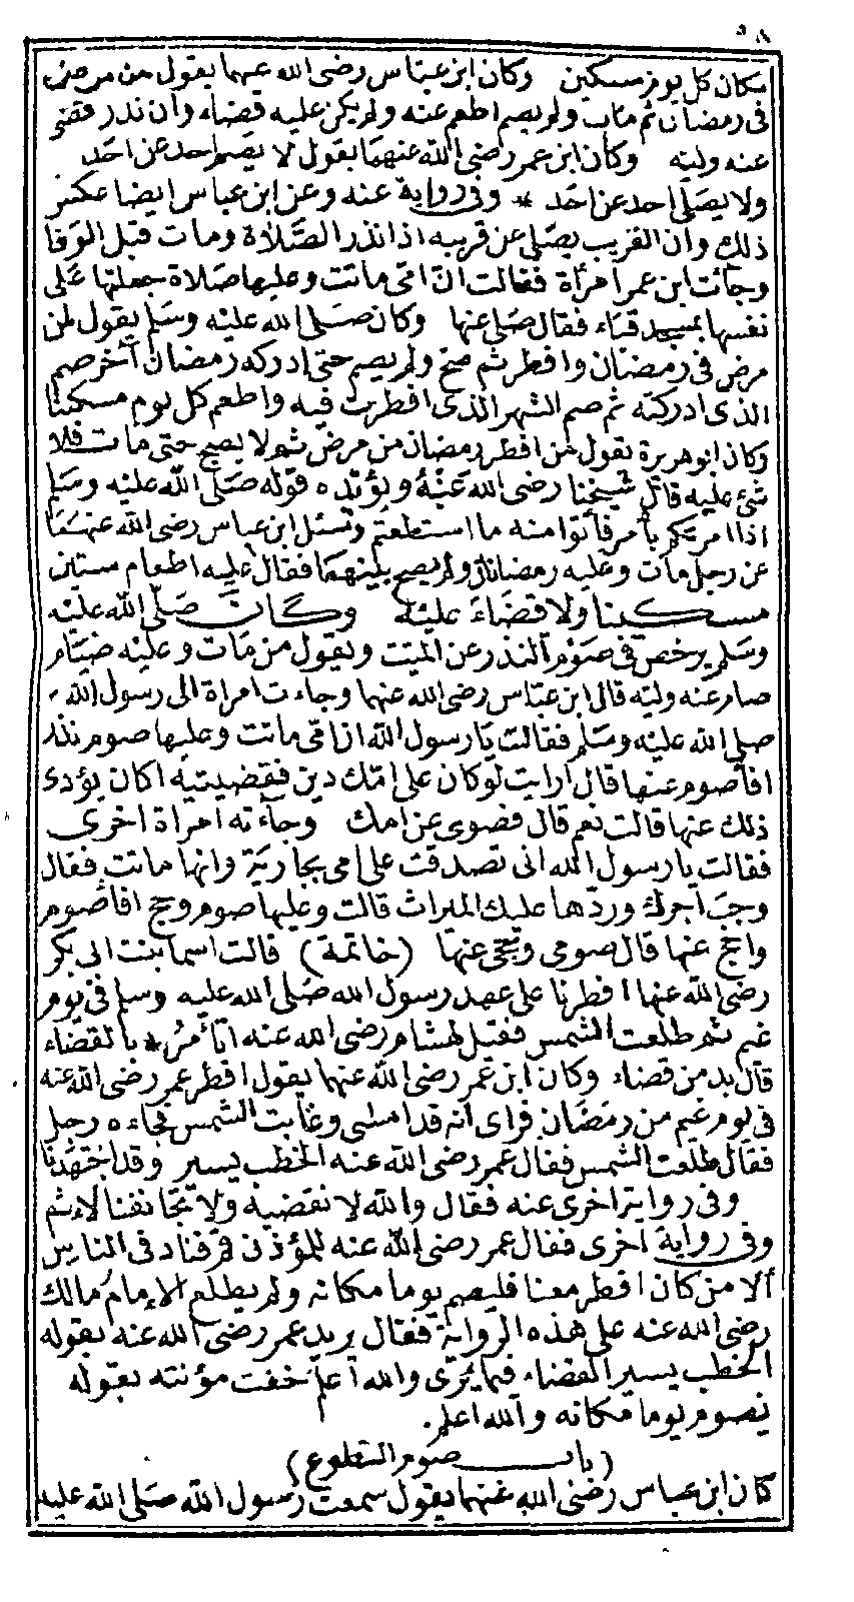 مكان كل يوم مسكين وكان ابن عباس رضى الله عنهما يقول من مرض
فى رمضان ثم مات ولم يصم اطعم عنه ولم يكن عليه قضاء وان نذر قضى
عنه وليه وكان ابن عمر رضى الله عنهما يقول لا يصم احد عن احد
ولا يصلى احد عن احد * وفى رواية عنه وعن ابن عباس ايضا عكس
ذلك وان القريب يصلى عن قريبه اذا نذر الصلاة ومات قبل الوفا
وجأت ابن عمر امرأة فقالت ان امى ماتت وعليها صلاة جعلتها على
نفسها بمسجد قباء فقال صلى عنها وكان صلى الله عليه وسلم يقول لمن
مرض فى رمضان وافطر ثم صح ولم يصم حتى ادركه رمضان آخر صم
الذى ادركته ثم صم الشهر الذى افطرت فيه واطعم كل يوم مسكينا
وكان ابو هريرة يقول من افطر رمضان من مرض ثم لا يصح حتى مات فلا
شئ عليه قال شيخنا رضى الله عنه ويؤيده قوله صلى الله عليه وسلم
اذا امرتكم بأمر فأتوا منه ما استطعتم وسئل ابن عباس رضى الله عنهما
عن رجل مات وعليه رمضانان ولم يصح بينهما فقال عليه اطعام ستين
مسكينا ولا قضاء عليه وكان صلى الله عليه
وسلم يرخص فى صوم النذر عن الميت ويقول من مات وعليه صيام
صام عنه وليه قال ابن عباس رضى الله عنهما وجاءت امراة الى رسول الله
صلى الله عليه وسلم فقالت يا رسول الله ان امى ماتت وعليها صوم نذر
افأصوم عنها قال ارايت لو كان على امك دين فقضيتيه اكان يؤدى
ذلك عنها قالت نعم قال فصومى عن امك وجآءته امراة اخرى
فقالت يا رسول الله انى تصدقت على امى بجارية وانها ماتت فقال
وجب اجرك وردها عليك الميراث قالت وعليها صوم وحج افأصوم
واحج عنها قال صومى وحجى عنها (خاتمة) قالت اسما بنت ابى بكر
رضى الله عنها افطرنا على عهد رسول الله صلى الله عليه وسلم فى يوم
غيم ثم طلعت الشمس فقيل لهشام رضى الله عنه اتأمر * بالقضاء
قال بد من قضاء وكان ابن عمر رضى الله عنهما يقول افطر عمر رضى الله عنه
فى يوم غيم من رمضان فراى انه قد امسى وغابت الشمس فجاءه رجل
فقال طلعت الشمس فقال عمر رضى الله عنه الخطب يسير وقد اجتهدنا
وفى رواية اخرى عنه فقال والله لا نقضيه ولا تجانفنا لاثم
وفى رواية اخرى فقال عمر رضى الله عنه للمؤذن قم فناد فى الناس
ألا من كان افطر معنا فليصم يوما مكانه ولم يطلع الإمام مالك
رضى الله عنه على هذه الرواية فقال يريد عمر رضى الله عنه بقوله
الخطب يسير القضاء فيما نرى والله اعلم خفت مؤنته بقوله
نصوم يوما مكانه والله اعلم.
(باب صوم التطوع)
كان ابن عباس رضى الله عنهما يقول سمعت رسول الله صلى الله عليه